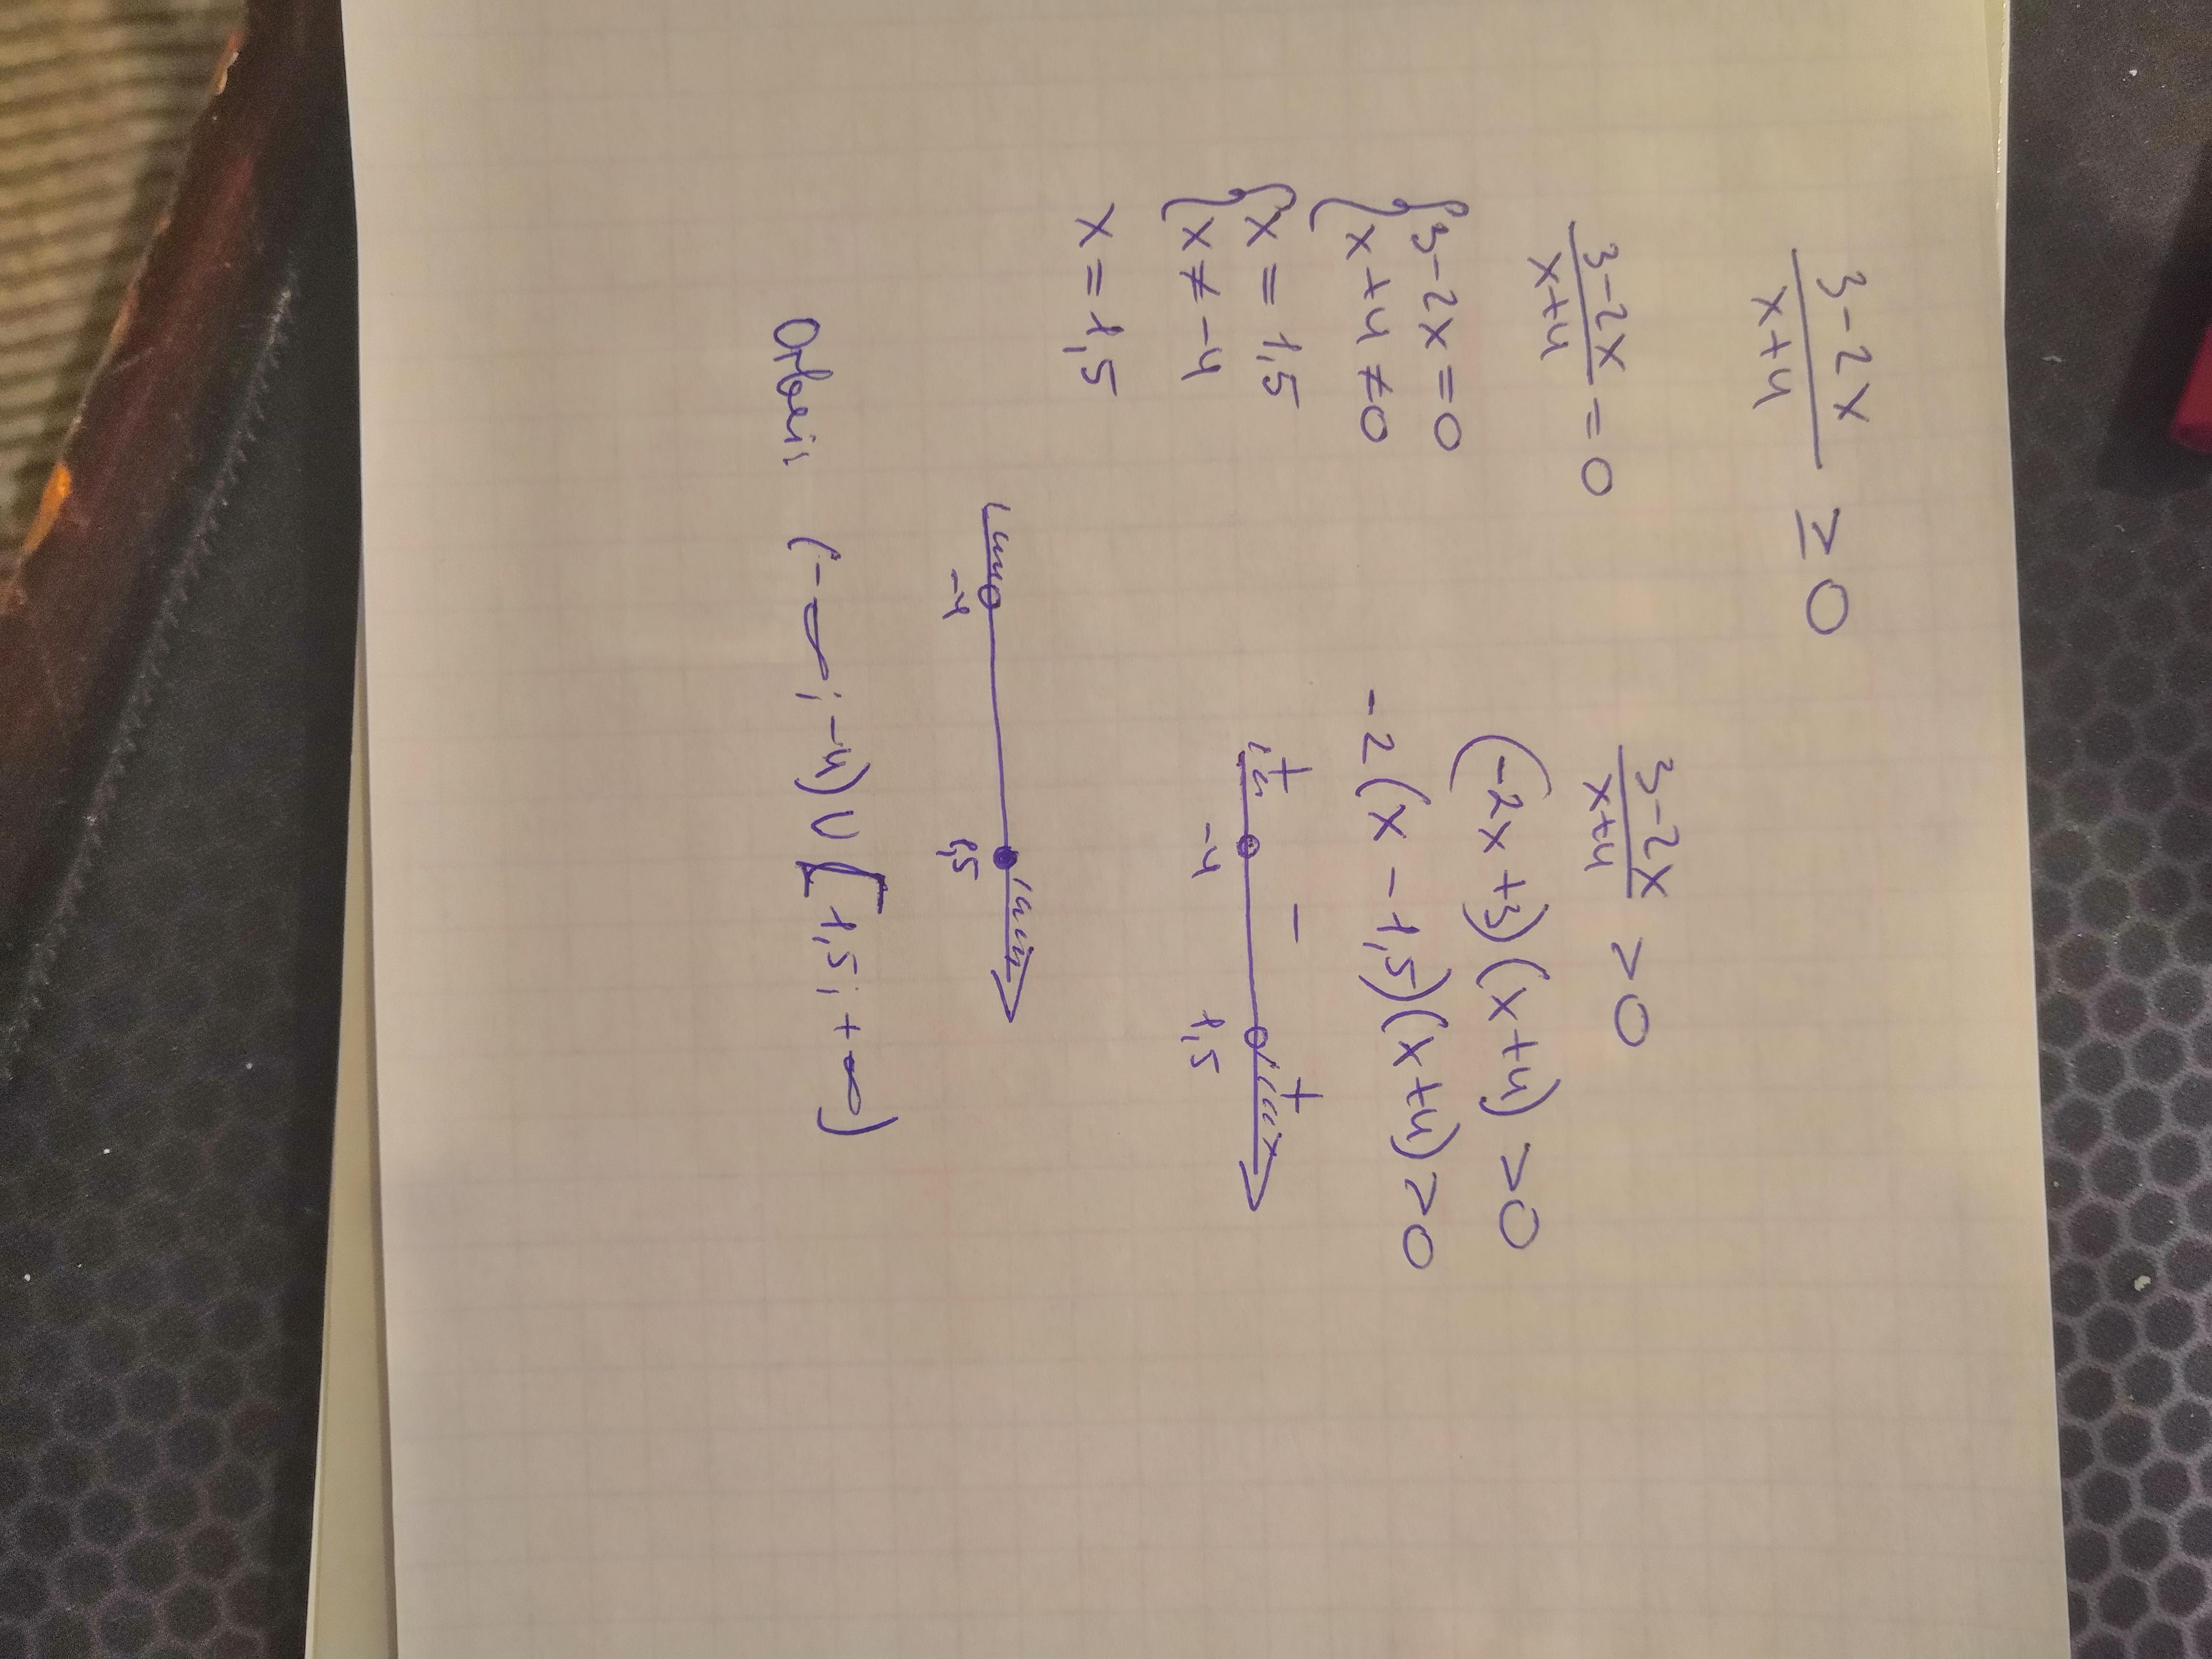 (3-2x)/(x+4) ≥ 0
(3-2x)/(x+4) = 0
{3-2x=0
{x+4≠0
{x=1,5
{x≠-4
x=1,5
(3-2x)/(x+4) >0
(-2x+3)(x+4)>0
-2(x-1,5)(x+4)>0
+ - +
-4 1,5
-4 1,5
Ответ (-∞; -4)∪[1,5; +∞)